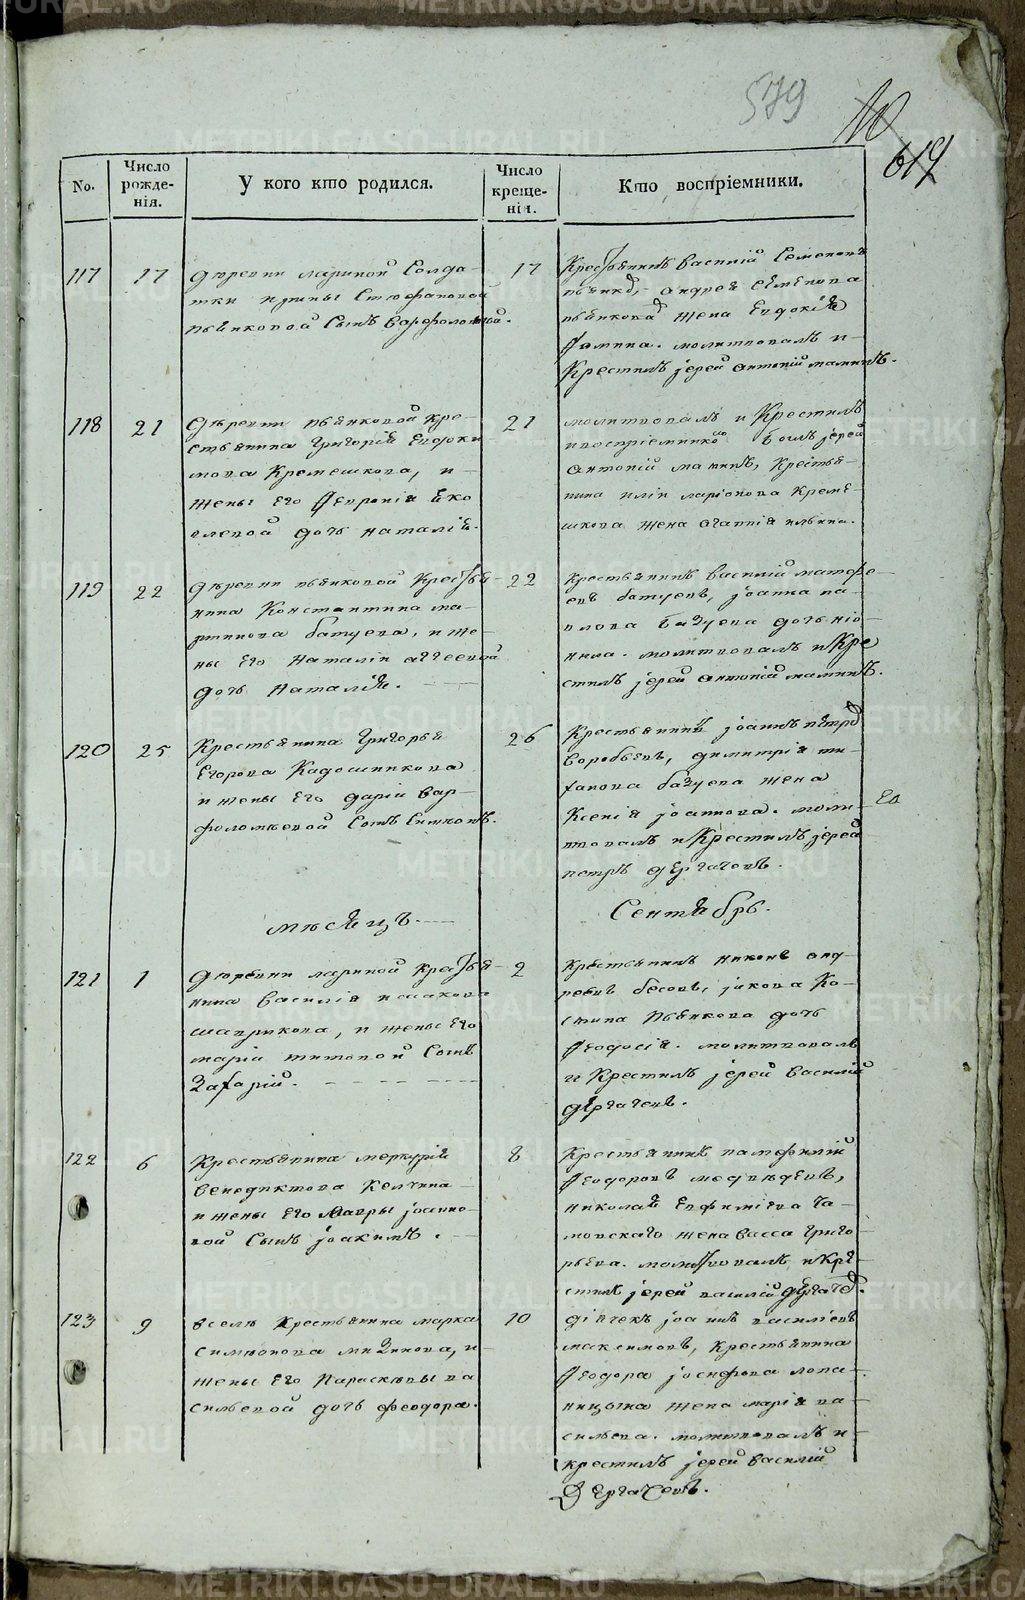 579
10
617
No.
Число рожде-нія.
У кого кто родился.
Число креще-нія.
Кто воспріемники.
117
17
деревни лариной Солда-
тки ирины Стефановой
пьянковой Сынъ варфоломей.
17
Крестьянинъ василій Семеновъ
андрея семенова
пьянкова жена Евдокія
фомина. молитвовалъ и
Крестилъ іерей антоній маминъ.
118
21
деревни пьянковой кре-
стьянина григорія Евдоки
мова Кремешкова, и
жены его февроніи
дочь наталія.
21
молитвовалъ и Крестилъ
и воспріемникомъ былъ іерей
антоній маминъ, Крестья-
нина иліи ларіонова Кремѣ-
шкова жена агапія ильина.
119
22
деревни пьянковой Крестья-
нина Константина ма-
батуева, и же-
ны его наталіи аггеевой
дочь наталія.
22
крестьянинъ василій матфе-
евъ батуевъ, іоанна па-
влова дочь нео-
нила. молитвовалъ и Кре
стилъ іерей антоній маминъ.
120
25
Крестьянина григорья
Егорова Кадошникова
и жены его даріи вар-
фоломеевой Сынъ Симеонъ.
26
Крестьянинъ іоаннъ петровъ
воробьевъ, димитрія ти-
хонова базуева жена
Ксенія іоаннова. моли-
твовалъ и Крестилъ іерей
петръ дергачевъ.
мѣсяцъ.
Сентябрь.
121
1
деревни лариной крестья-
нина василія исакова
шаврикова, и жены его
маріи титовой Сынъ
Захарій.
2
крестьянинъ никонъ анд-
реевъ бесовъ, іакова Ко-
стина пьянкова дочь
феодосія. молитвовалъ
и Крестилъ іерей василій
дергачевъ.
122
6
Крестьянина меркурія
венедиктова Келчина
и жены его мавры іоанно-
вой Сынъ іоакимъ.
8
Крестьянинъ памфилій
феодоровъ медведевъ,
николая Евфиміева ча-
мовскаго жена васса григо-
рьева. молитвовалъ и Кре-
стилъ іерей василій дергачевъ.
123
9
вселя Крестьянина марка
симеонова мизинова, и
жены его параскевы ва
сильевой дочь феодора.
10
діячекъ іоаннъ василіевъ
максимовъ, Крестьянина
феодора іосифова лопа-
ницына жена марія ва-
сильева. молитвовалъ и
крестилъ іерей василій
Дергачевъ.